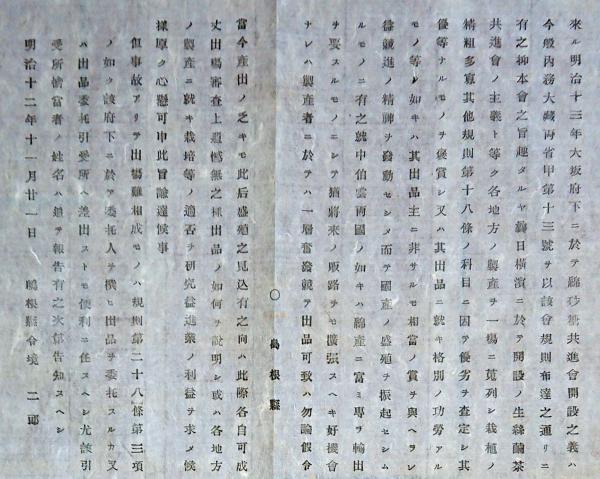 來ル明治十三年大坂府下ニ於テ綿砂糖共進會開設之義ハ
今般内務大藏両省甲第十三號ヲ以該會規則布達之通リニ
有之抑本會之旨趣タルヤ曩日横濱ニ於テ開設ノ生絲繭茶
共進會ノ主義ト等ク各地方ノ製產ヲ一場ニ蒐列シ栽植ノ
精粗多寡其他規則第十八條ノ科目ニ因テ優劣ヲ査定シ其
優等ナルモノヲ褒賞シ又ハ其出品ニ就キ格別ノ功勞アル
モノ等ノ如キハ其出品主ニ非サルモ相當ノ賞ヲ與ヘラレ
儕競進ノ精神ヲ發動セシメ而テ國產ノ盛殖ヲ振起セシム
ルモノニ有之就中伯雲両國ノ如キハ綿產ニ富ミ專ラ輸出
ヲ要スルモノニシテ猶將來ノ販路ヲモ擴張スヘキ好機會
ナレハ製產者ニ於テハ一層奮發競テ出品可致ハ勿論假令
〇 島根縣
當今產出ノ乏キモ此后盛殖之見込有之向ハ此際各自可成
丈出場審査上遺憾無之樣出品ノ如何ヲ說明シ或ハ各地方
ノ製產ニ就キ栽培等ノ適否ヲ研究益進業ノ利益ヲ求メ候
樣厚ク心懸可申此旨諭達候事
但事故アリテ出場難相成モノハ規則第二十八條第三項
ノ如ク該府下ニ於テ委托人ヲ撰ヒ出品ヲ委托スルカ又
ハ出品委托引受所ヘ差出ストモ便利ニ任スヘシ尤該引
受所擔當者ノ姓名ハ追テ報告有之次第告知スヘシ
明治十二年十一月廿一日 島根縣令境 二郎